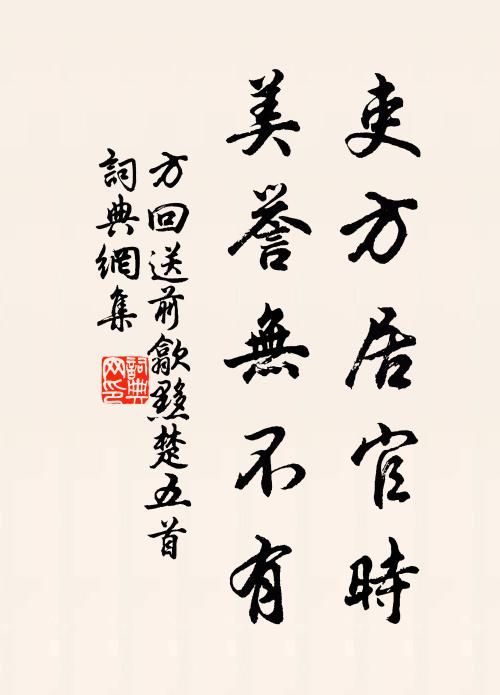 吏方居官時
美譽無不有
方回送前歙黟楚五首
詞典網集
詞典网印